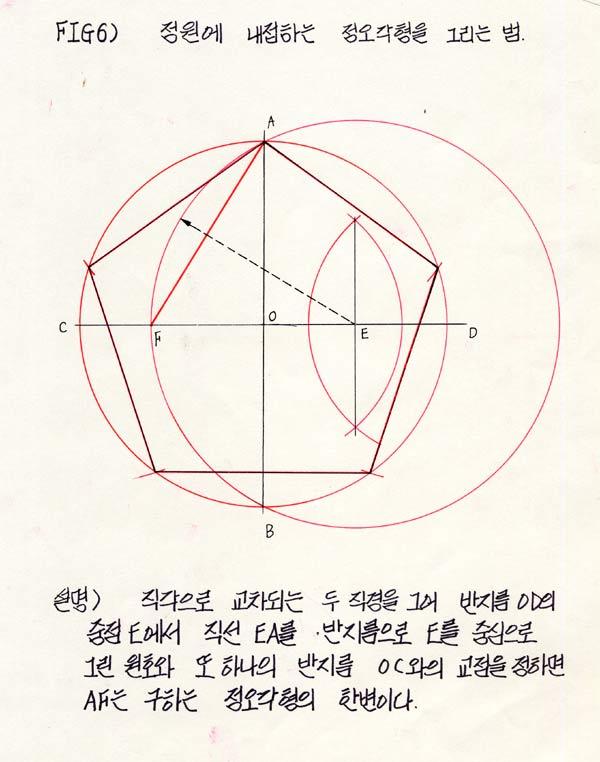 FIG6) 정원에 내접하는 정오각형을 그리는 법.
A
C F O E D
B
설명) 직각으로 교차되는 두 직경을 그어 반지름 OD의
중점 E에서 직선 EA를 반지름으로 E를 중심으로
그린 원호와 또 하나의 반지름 OC와의 교점을 정하면
AF는 구하는 정오각형의 한변이다.